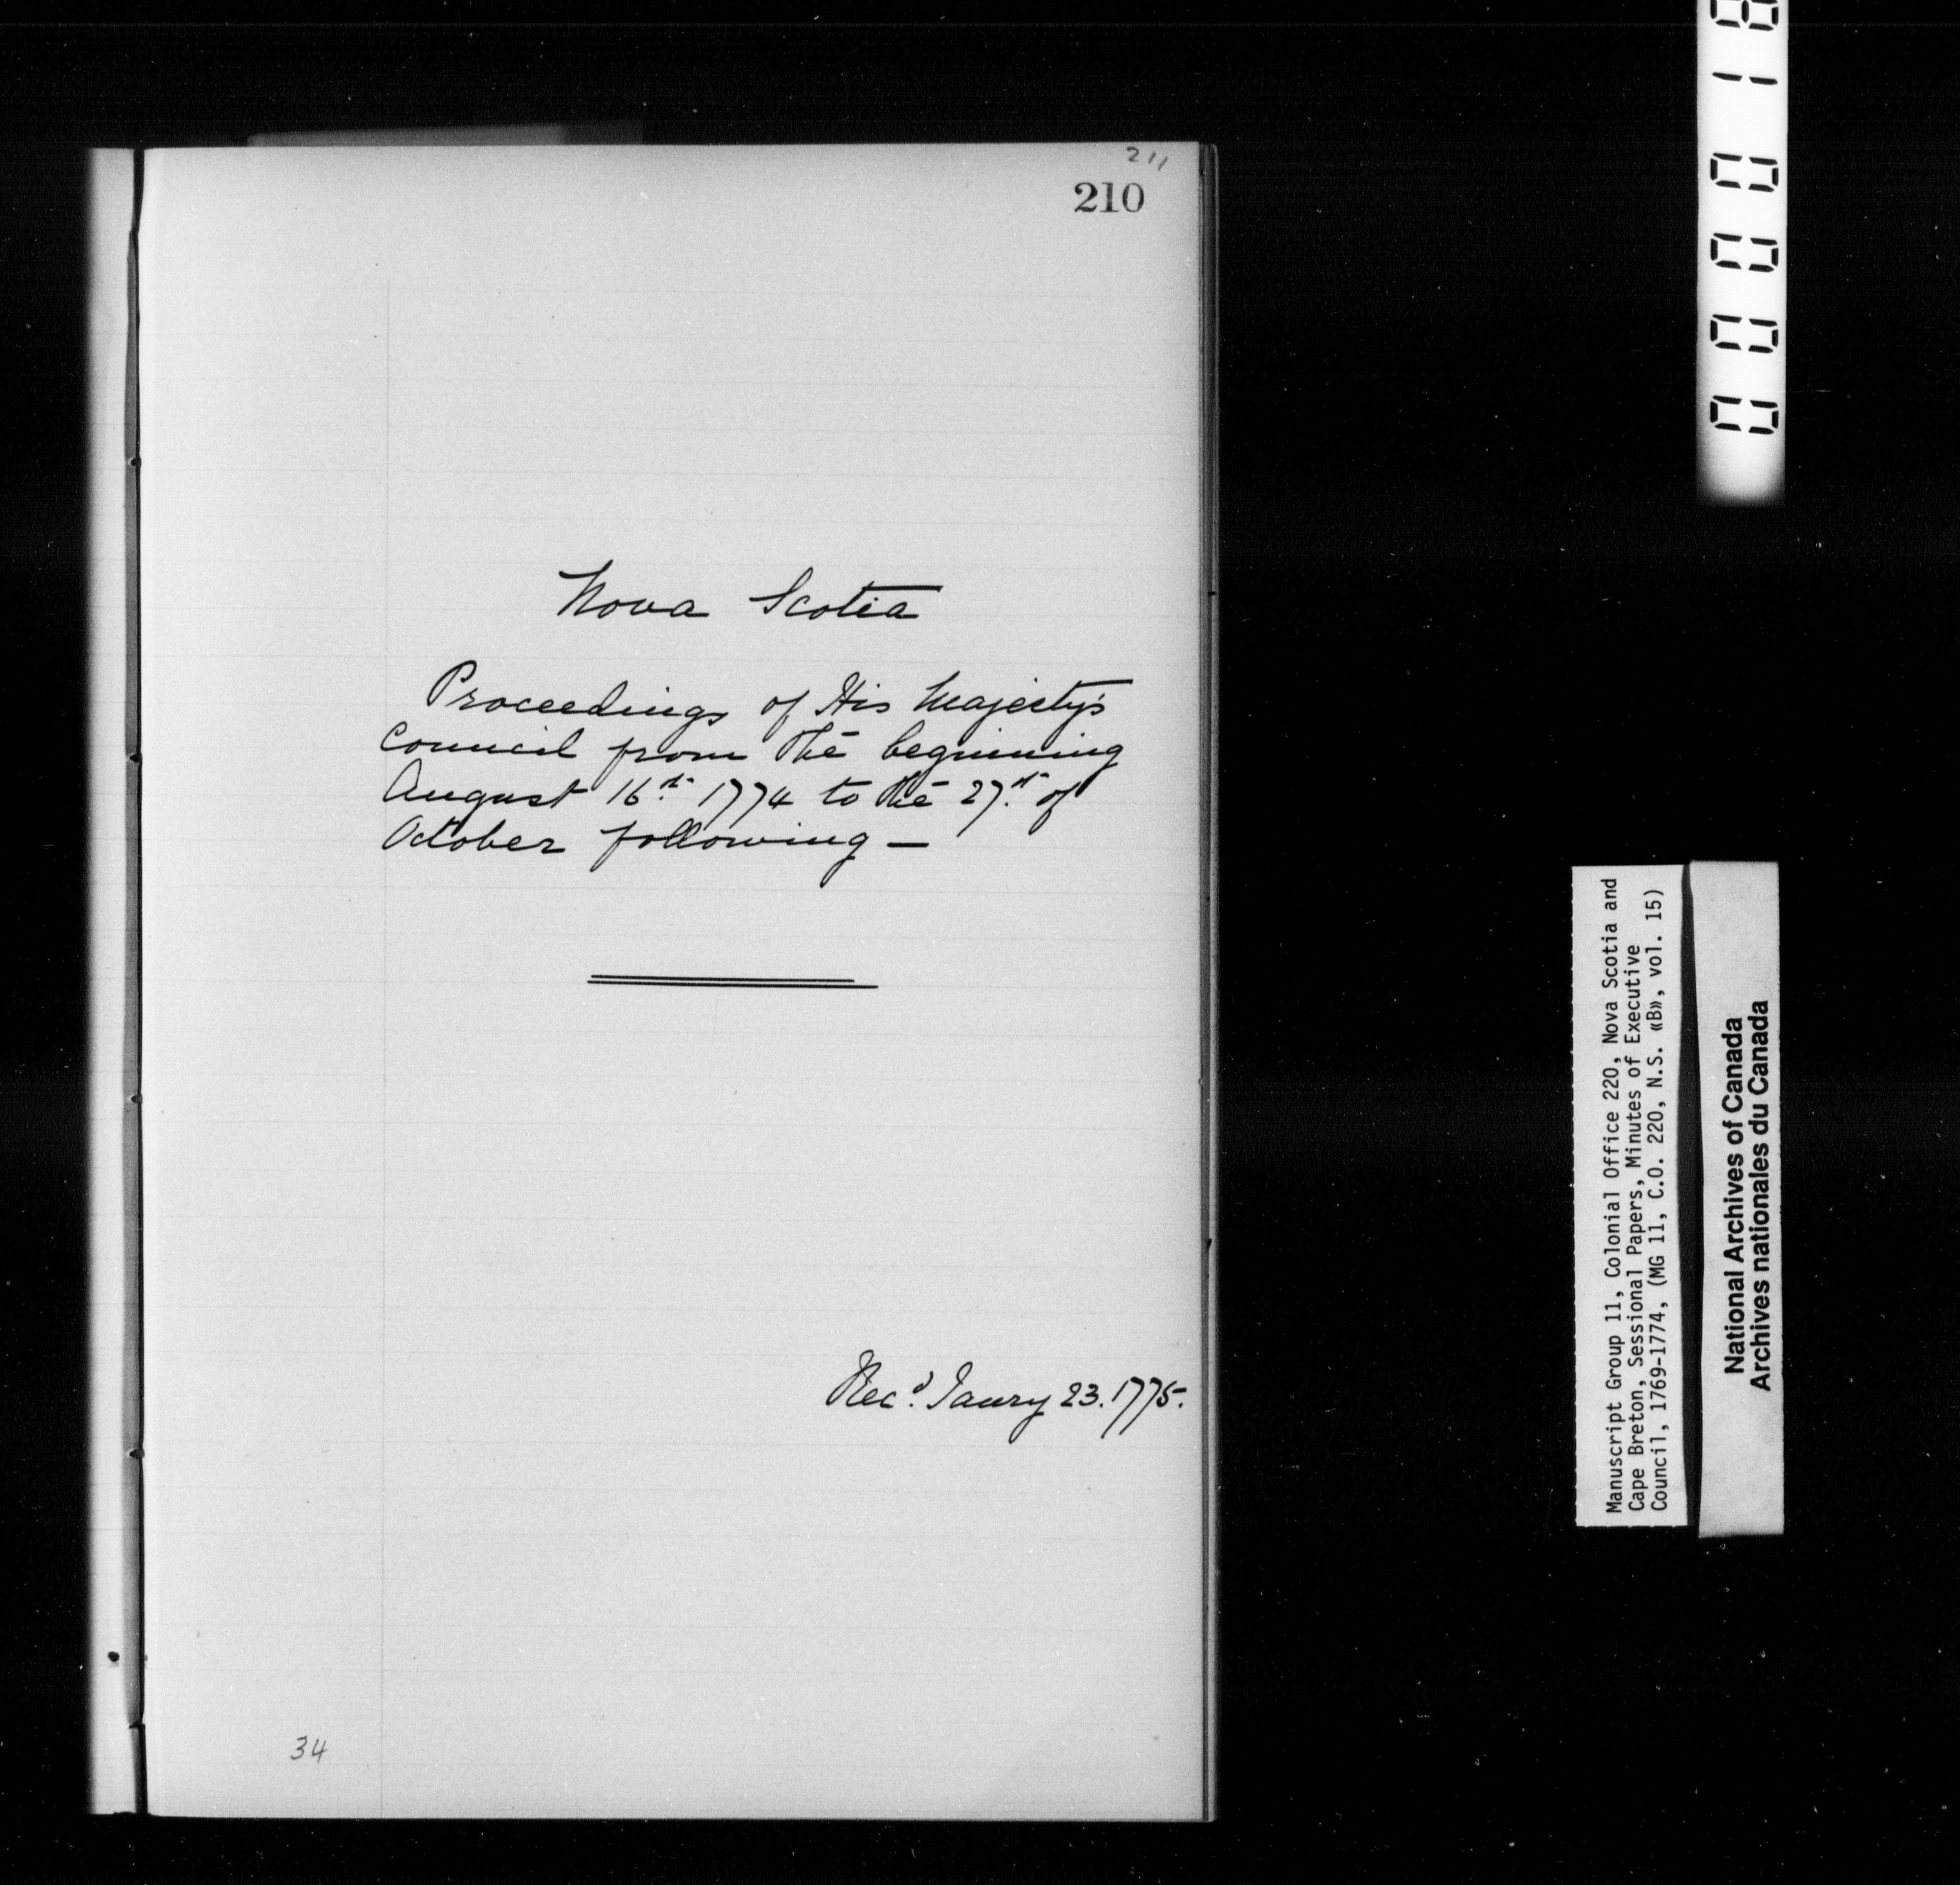 211
210
Nova Scotia
Proceedings of His Majesty's
Council from the beginning
August 16th 1774 to the 27th of
October following —
Recd. Janry 23. 1775.
34
Manuscript Group 11, Colonial Office 220, Nova Scotia and
Cape Breton, Sessional Papers, Minutes of Executive
Council, 1769-1774, (MG 11, C.O. 220, N.S. «B», vol. 15)
National Archives of Canada
Archives nationales du Canada